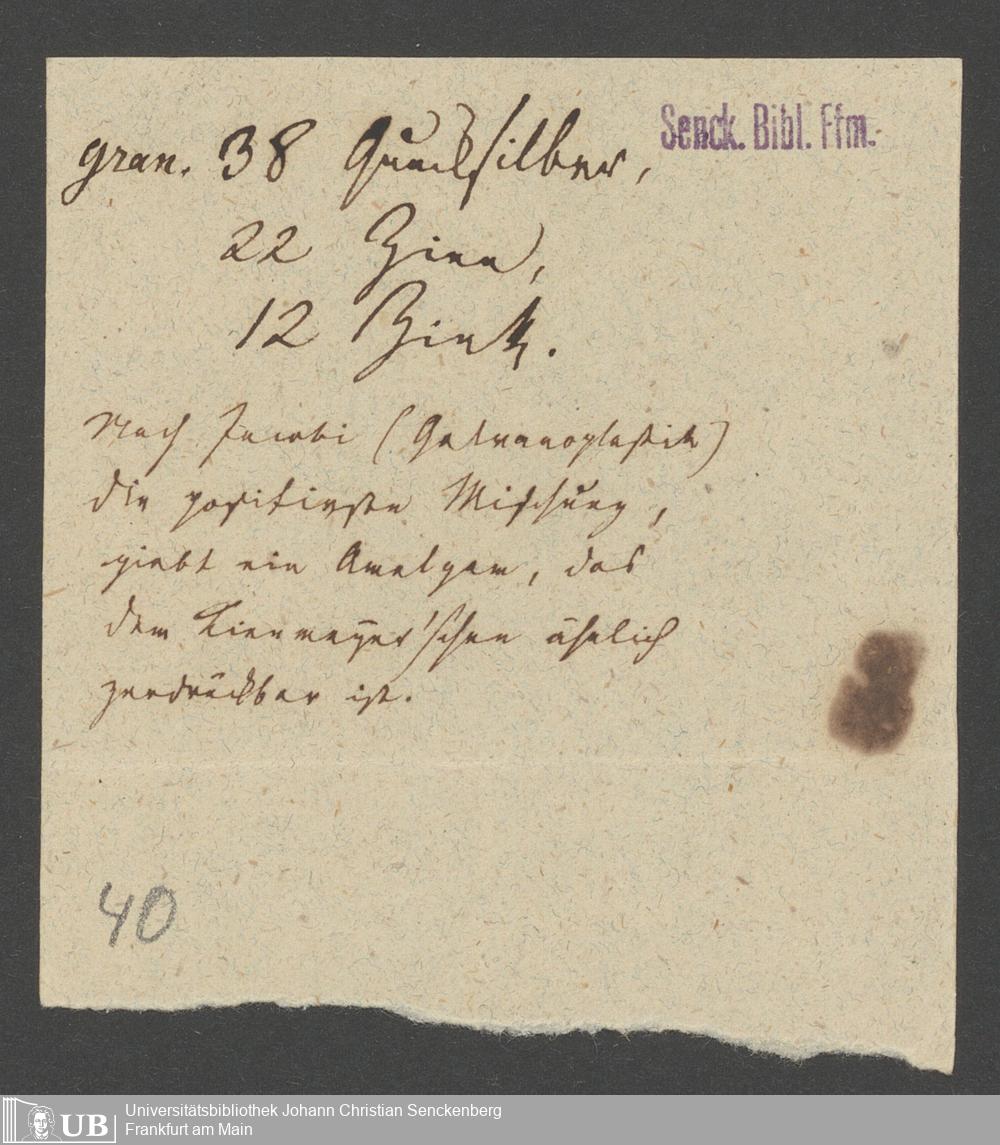 Senck. Bibl. Ffm.
gran. 38 Quecksilber,
22 Zinn,
12 Zink.
Nach Jacobi (Galvanoplastik)
die positivste Mischung,
giebt ein Amalgam, das
dem Kienmayer'schen ähnlich
zerdrückbar ist.
40
UB Universitätsbibliothek Johann Christian Senckenberg
Frankfurt am Main